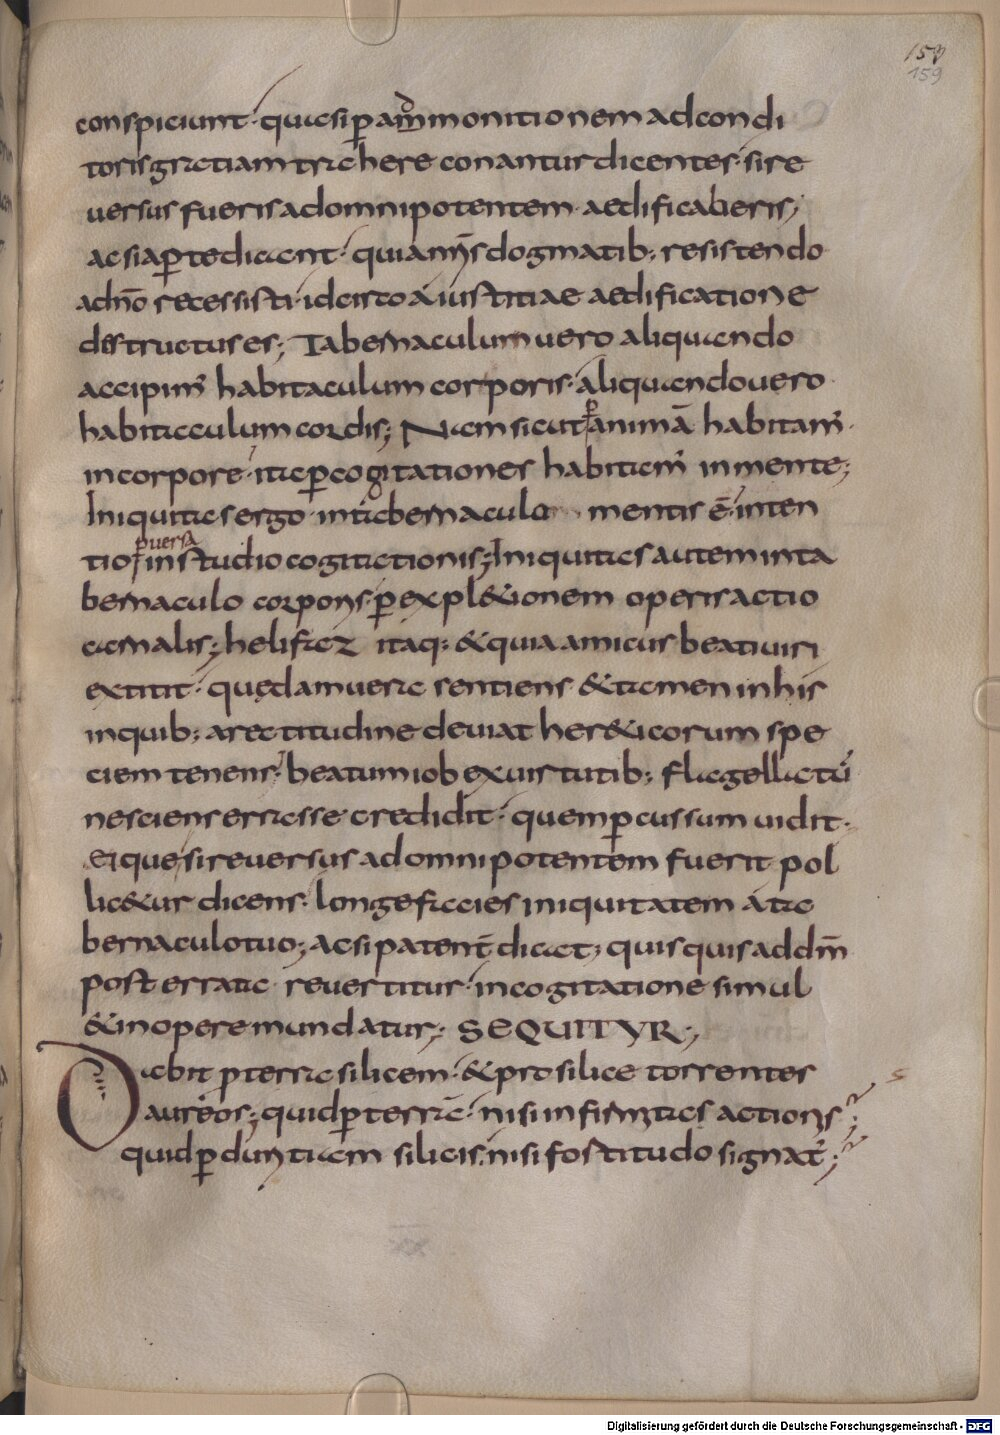 158
159
conspiciunt· quasi ꝑ ammonitionem ad condi
toris gratiam trahere conantur dicentes· si re
uersus fueris ad omnipotentem aedificaberis;
ac si aꝑte dicant· quia nr̄is dogmatib; resistendo
ad nō recessisti· idcirco a iustitiae aedificatione
destructus es; Tabernaculum uero aliquando
accipim' habitaculum corporis· aliquando uero
habitaculum cordis; Nam sicut ꝑ animā habitam'
in corpore· ita ꝑ cogitationes habitam' in mente;
Iniquitas ergo in tabernaculo mentis ē· inten
tio ꝑuersa in studio cogitationis; Iniquitas autem in ta
bernaculo corporis· ꝑ expl&ionem operis actio
carnalis; helifaz itaq; & quia amicus beati uiri
extitit· quędam uera sentiens & tamen in his
in quib; a rectitudine deuiat her&icorum spe
ciem tenens· beatum iob ex uirtutib; flagellatū
nesciens errasse credidit· quem ꝑcussum uidit·
eique si reuersus ad omnipotentem fuerit pol
lic&ur dicens· longe facies iniquitatem a ta
bernaculo tuo; Ac si patent̄ dicat; quisquis ad dm̄
post errata reuertitur· in cogitatione simul
& in opere mundatur; SEQUITUR;
Dabit ꝓ terra silicem· & pro silice torrentes
aureos; quid ꝑ terrā· nisi infirmitas actionis
quid ꝑ duritiam silicis· nisi fortitudo signat';
Digitalisierung gefördert durch die Deutsche Forschungsgemeinschaft - DFG